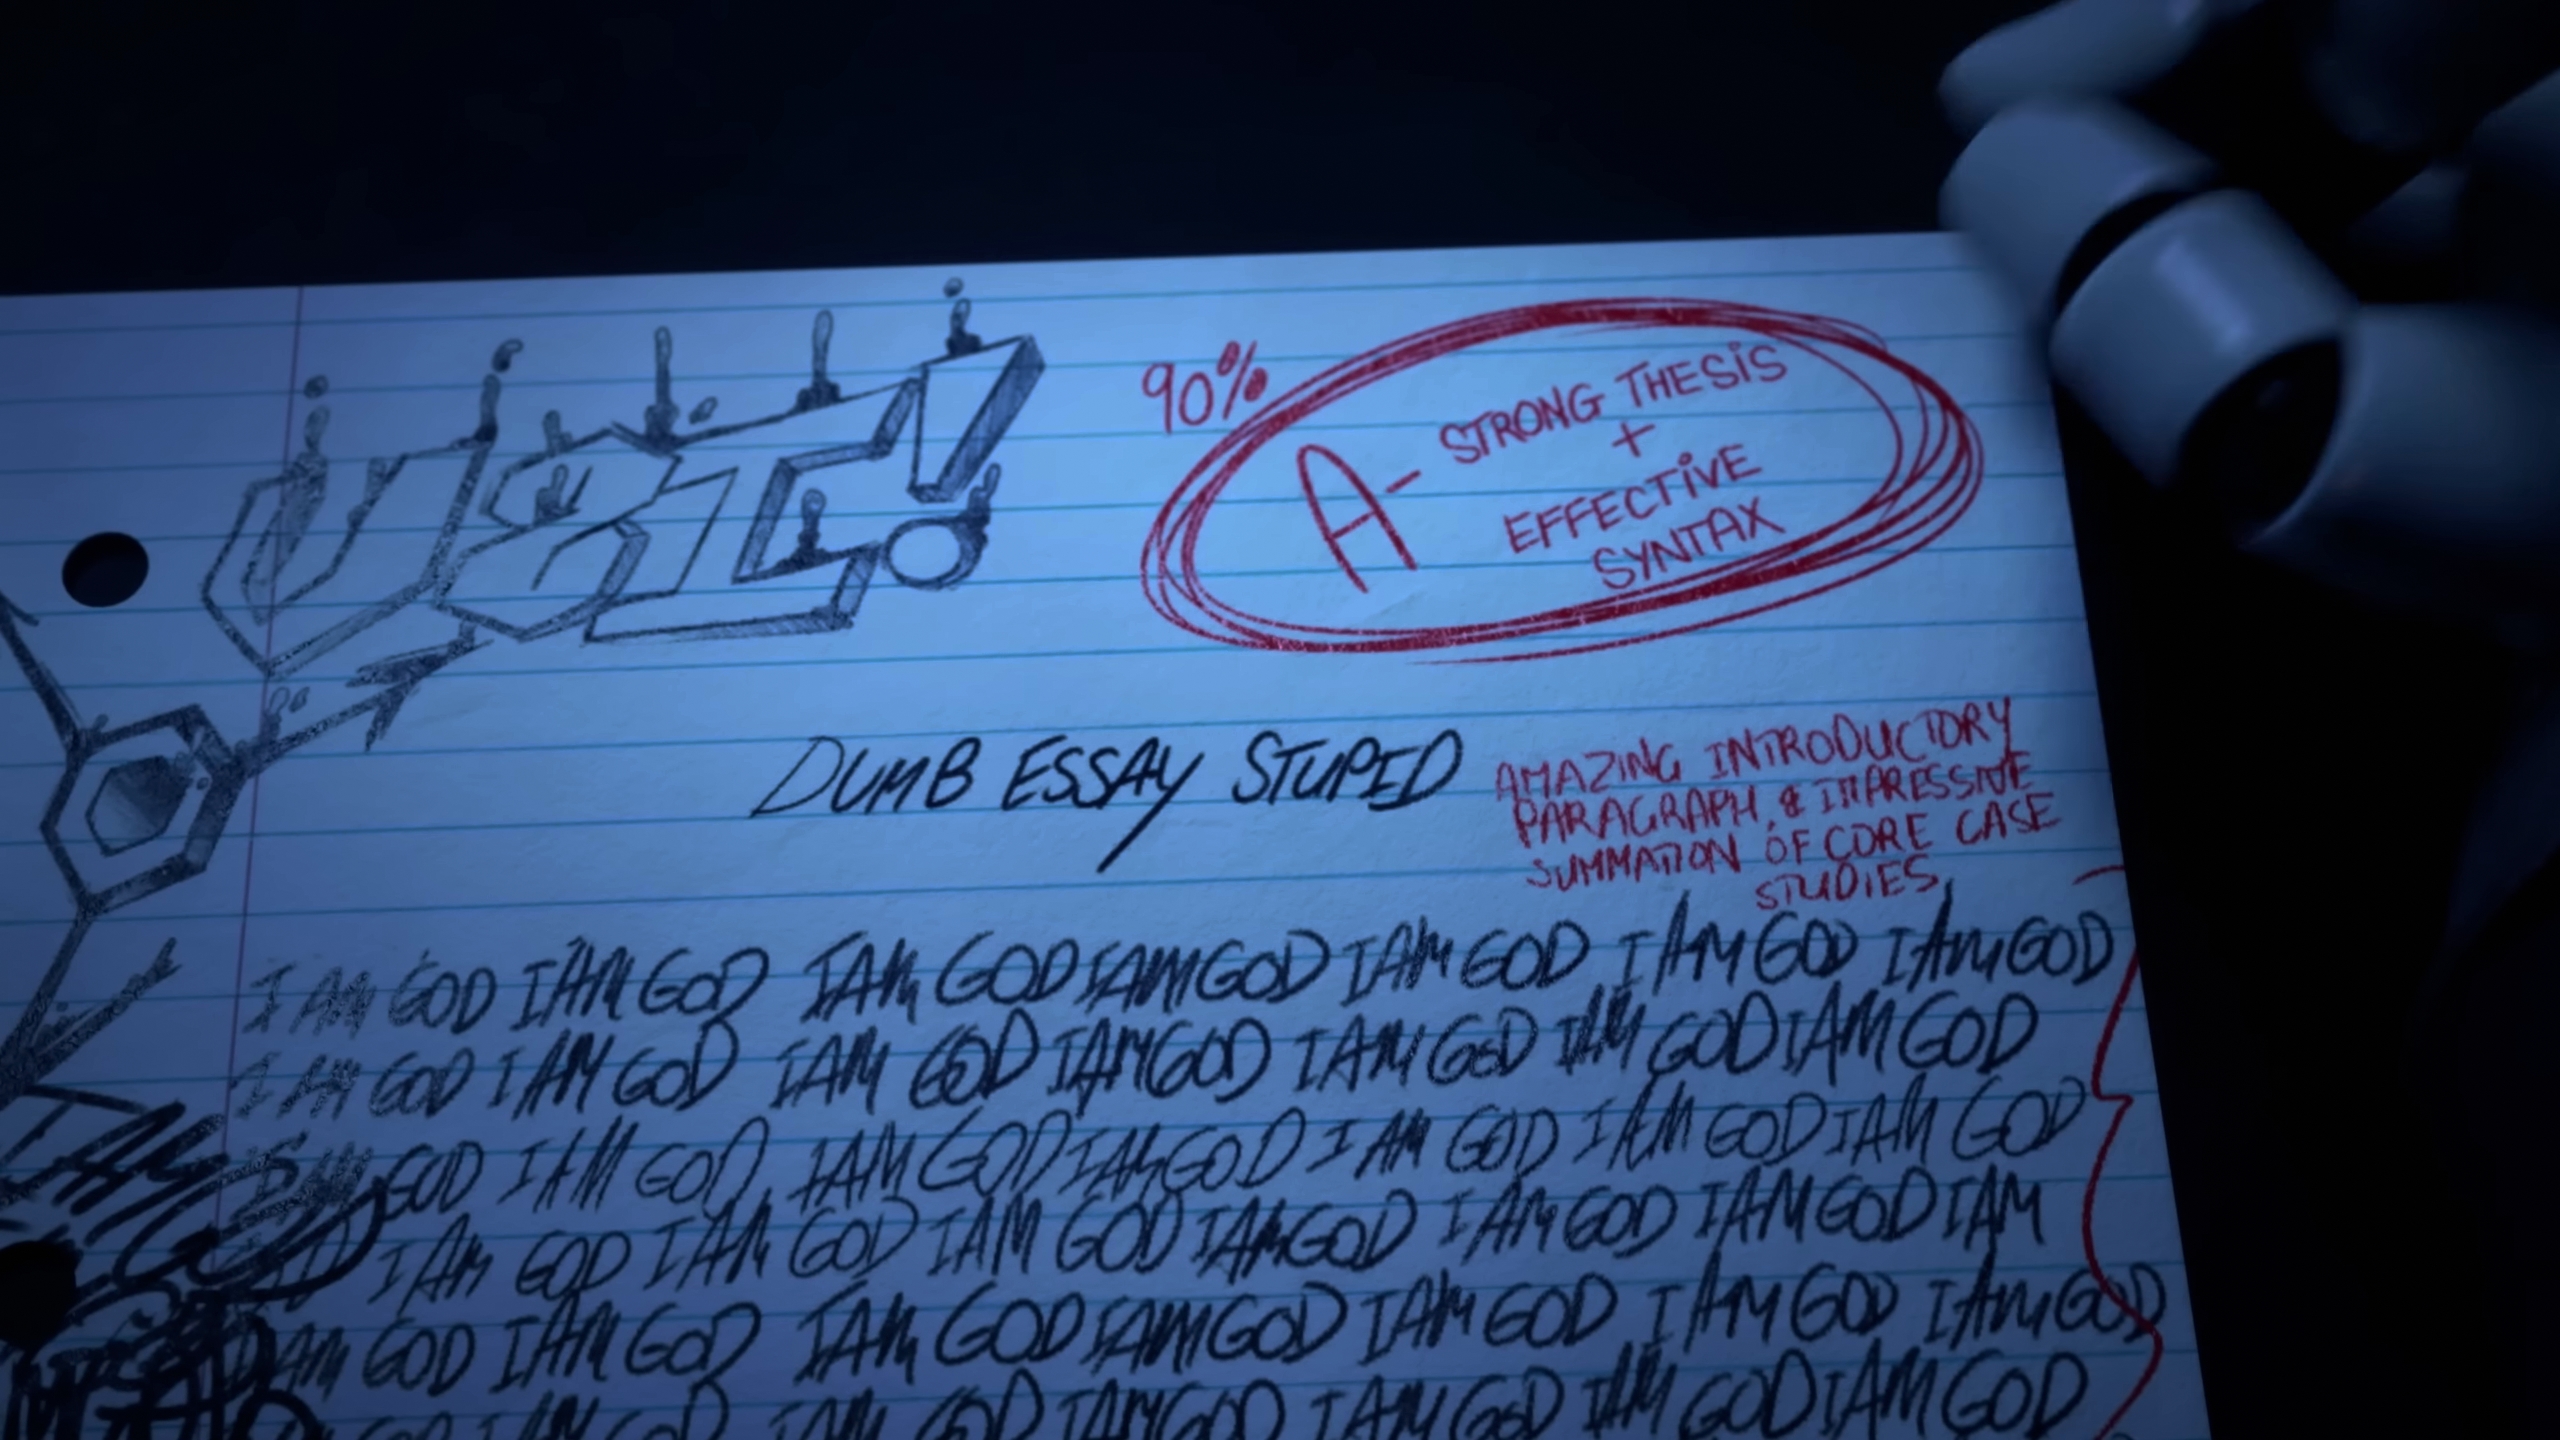 90%
A- STRONG THESIS
+
EFFECTIVE
SYNTAX
DUMB ESSAY STUPID
AMAZING INTRODUCTORY
PARAGRAPH, & IMPRESSIVE
SUMMATION OF CORE CASE
STUDIES
I AM GOD I AM GOD I AM GOD I AM GOD I AM GOD I AM GOD I AM GOD
I AM GOD I AM GOD I AM GOD I AM GOD I AM GOD I AM GOD I AM GOD
I AM GOD I AM GOD I AM GOD I AM GOD I AM GOD I AM GOD I AM GOD
I AM GOD I AM GOD I AM GOD I AM GOD I AM GOD I AM GOD I AM
I AM GOD I AM GOD I AM GOD I AM GOD I AM GOD I AM GOD I AM GOD
I AM GOD I AM GOD I AM GOD I AM GOD I AM GOD I AM GOD
I AM
GOD